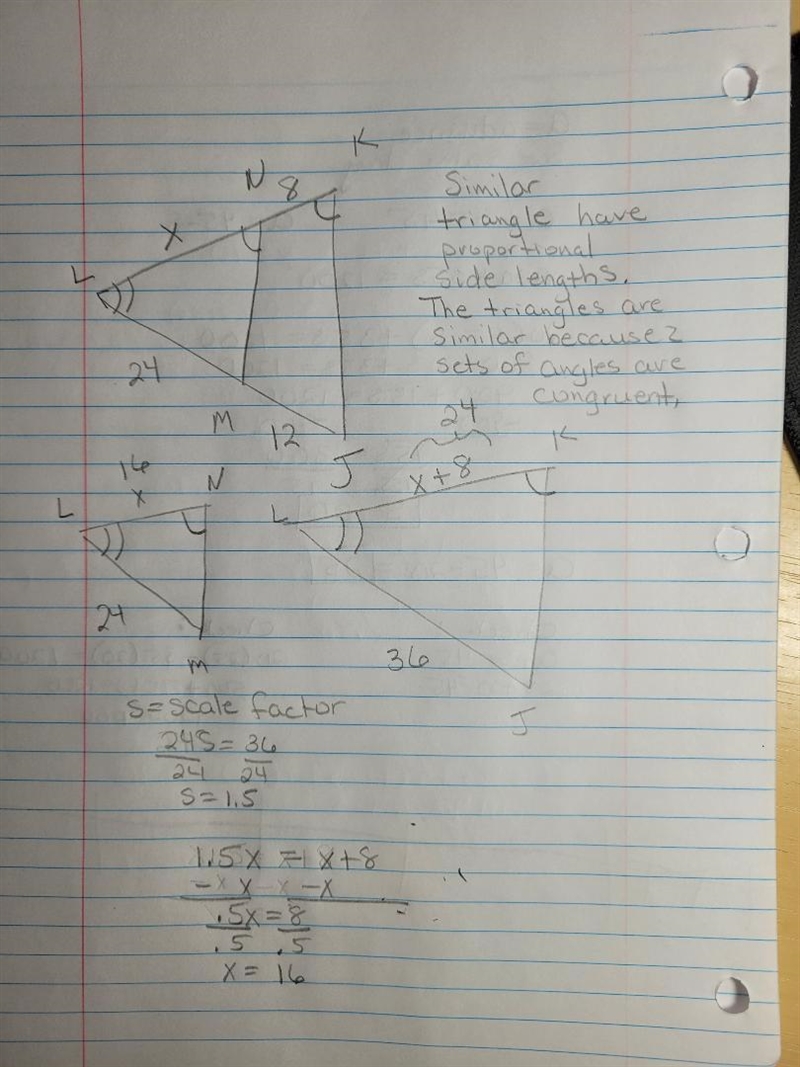 K
N 8
X
L
24
M
12
J
Similar
triangle have
proportional
side lengths.
The triangles are
similar because 2
sets of angles are
congruent,
16
x
L
N
24
M
24
x+8
K
L
36
J
S = scale factor
24S = 36
24 24
S = 1.5
1.5x = 1x+8
-x -x
.5x = 8
.5 .5
x = 16